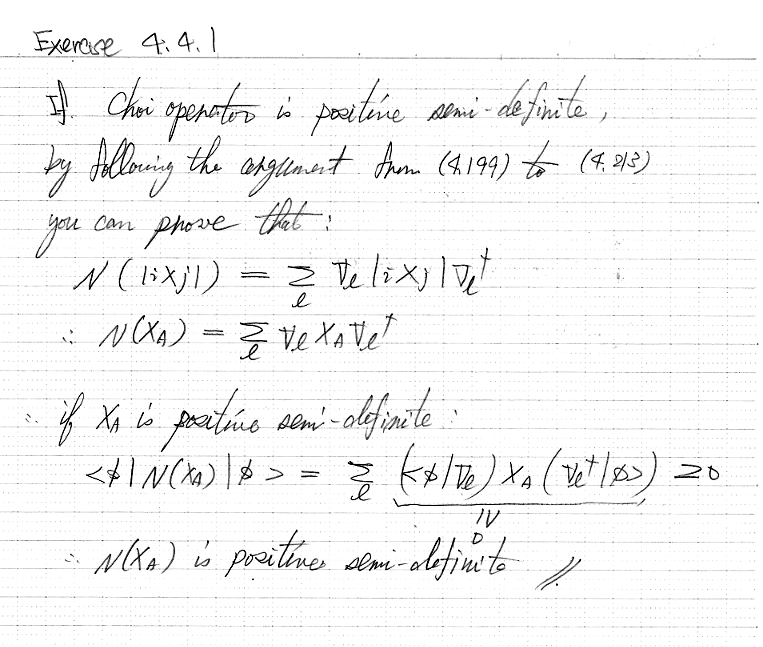 Exercise 4.4.1
If Choi operator is positive semi-definite,
by following the argument from (4.199) to (4.213)
you can prove that:
N(|i×j|) = Σ_l V_l |i×j| V_l†
∴ N(X_A) = Σ_l V_l X_A V_l†
∴ if X_A is positive semi-definite:
<φ|N(X_A)|φ> = Σ_l (<φ|V_l) X_A (V_l†|φ>) ≥0
≥ 0
∴ N(X_A) is positive semi-definite //